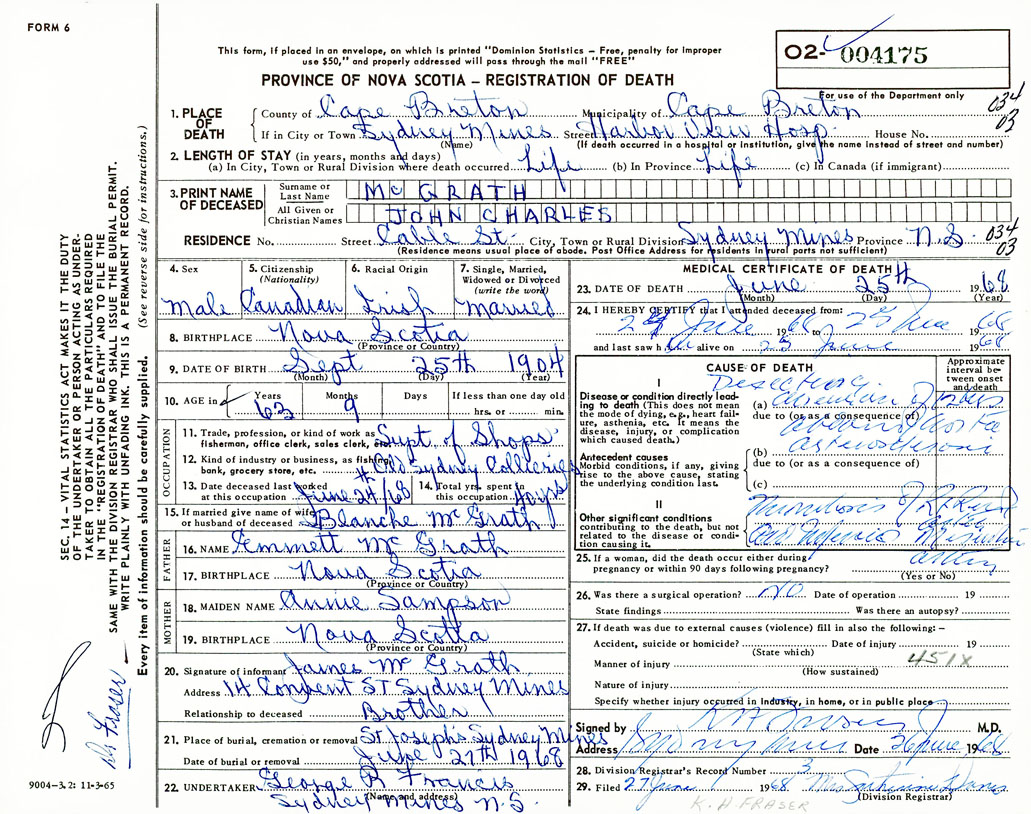 FORM 6
This form, if placed in an envelope, on which is printed "Dominion Statistics – Free, penalty for improper
use $50," and properly addressed will pass through the mail "FREE"
O2- 004175
PROVINCE OF NOVA SCOTIA – REGISTRATION OF DEATH
For use of the Department only
034
03
1. PLACE OF DEATH
County of Cape Breton Municipality of Cape Breton
If in City or Town Sydney Mines Street Harbor View Hosp. House No.
(Name) (If death occurred in a hospital or institution, give the name instead of street and number)
2. LENGTH OF STAY (in years, months and days)
(a) In City, Town or Rural Division where death occurred Life (b) In Province Life (c) In Canada (if immigrant)
3. PRINT NAME OF DECEASED
Surname or Last Name McGRATH
All Given or Christian Names JOHN CHARLES
RESIDENCE No. Street Cable St. City, Town or Rural Division Sydney Mines Province N.S. 034
03
(Residence means usual place of abode. Post Office Address for residents in rural parts not sufficient)
4. Sex
Male
5. Citizenship
(Nationality)
Canadian
6. Racial Origin
Irish
7. Single, Married,
Widowed or Divorced
(write the word)
Married
8. BIRTHPLACE Nova Scotia
(Province or Country)
9. DATE OF BIRTH Sept 25th 1904
(Month) (Day) (Year)
10. AGE in Years Months Days If less than one day old
63 9 hrs. or min.
OCCUPATION
11. Trade, profession, or kind of work as
fisherman, office clerk, sales clerk, etc. Supt of Shops
12. Kind of industry or business, as fishing,
bank, grocery store, etc. Old Sydney Collieries
13. Date deceased last worked
at this occupation June 24/68
14. Total yrs. spent in
this occupation 40 yrs
15. If married give name of wife
or husband of deceased Blanche McGrath
FATHER
16. NAME Emmett McGrath
17. BIRTHPLACE Nova Scotia
(Province or Country)
MOTHER
18. MAIDEN NAME Annie Sampson
19. BIRTHPLACE Nova Scotia
(Province or Country)
20. Signature of informant James McGrath
Address 14 Convent ST Sydney Mines
Relationship to deceased Brother
21. Place of burial, cremation or removal St Josephs Sydney Mines
Date of burial or removal June 27th 1968
22. UNDERTAKER George B Francis
(Name and address)
Sydney Mines N.S.
MEDICAL CERTIFICATE OF DEATH
23. DATE OF DEATH June 25th 1968
(Month) (Day) (Year)
24. I HEREBY CERTIFY that I attended deceased from:
June 1968 to 1968
and last saw h alive on 25 June 1968
CAUSE OF DEATH
Approximate interval between onset and death
I
Disease or condition directly leading to death (This does not mean the mode of dying, e.g., heart failure, asthenia, etc. It means the disease, injury, or complication which caused death.)
(a)
due to (or as a consequence of)
Antecedent causes
Morbid conditions, if any, giving rise to the above cause, stating the underlying condition last.
(b)
due to (or as a consequence of)
(c)
II
Other significant conditions
contributing to the death, but not related to the disease or condition causing it.
25. If a woman, did the death occur either during
pregnancy or within 90 days following pregnancy?
(Yes or No)
26. Was there a surgical operation? NO Date of operation 19
State findings Was there an autopsy?
27. If death was due to external causes (violence) fill in also the following: –
Accident, suicide or homicide? Date of injury 19
(State which)
Manner of injury 451X
(How sustained)
Nature of injury
Specify whether injury occurred in Industry, in home, or in public place
Signed by M.D.
Address Sydney Mines Date 26 June 1968
28. Division Registrar's Record Number 3
29. Filed 27 June 1968 Mrs
(Division Registrar)
K. H FRASER
SEC. 14 – VITAL STATISTICS ACT MAKES IT THE DUTY
OF THE UNDERTAKER OR PERSON ACTING AS UNDER-
TAKER TO OBTAIN ALL THE PARTICULARS REQUIRED
IN THE "REGISTRATION OF DEATH" AND TO FILE THE
SAME WITH THE DIVISION REGISTRAR WHO SHALL ISSUE THE BURIAL PERMIT.
WRITE PLAINLY WITH UNFADING INK. THIS IS A PERMANENT RECORD.
Every item of information should be carefully supplied. (See reverse side for instructions.)
Dr Fraser
9004-3.2: 11-3-65